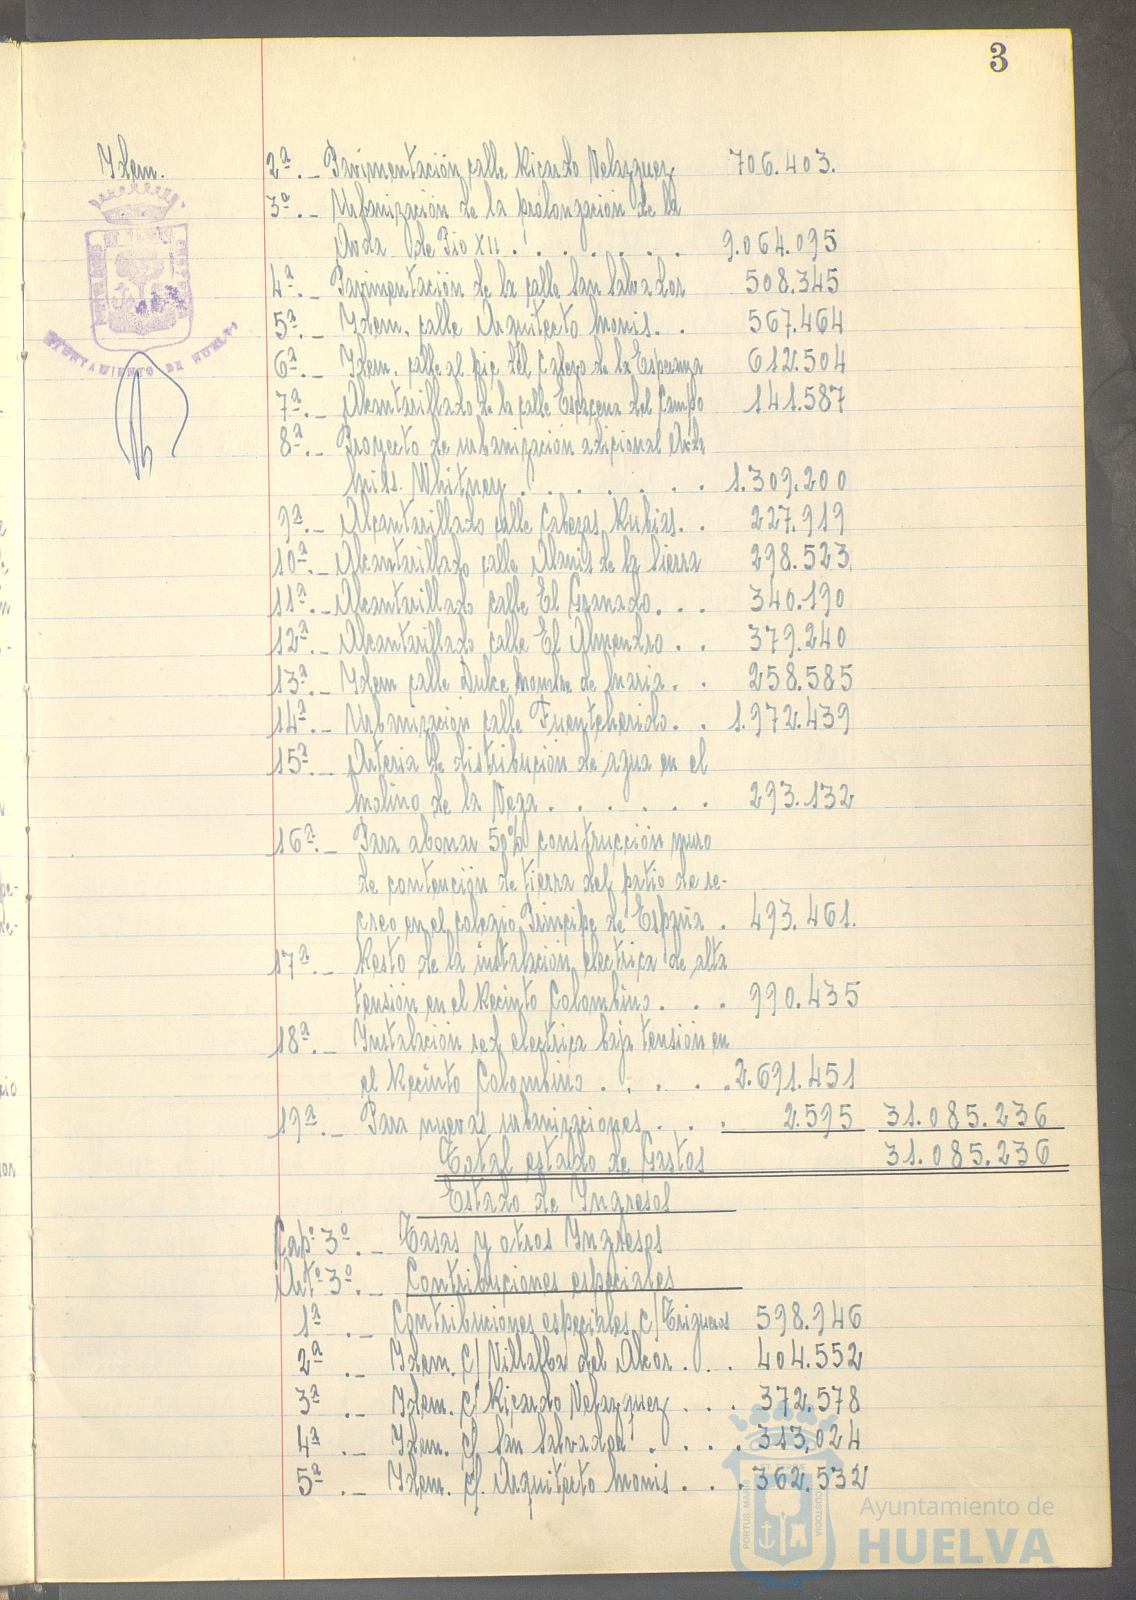 3
Idem.
2ª._ Pavimentación calle Ricardo Velazquez 706.403.
3ª._ Urbanización de la prolongación de la
Avda de Pio XII . . . . . . . 9.064.095
4ª._ Pavimentación de la calle San Salvador 508.345
5ª._ Idem. calle Arquitecto Monis. . 567.464
6ª._ Idem. calle al pie del Cabezo de la Esperanza 612.504
7ª._ Alcantarillado de la calle Escacena del Campo 141.587
8ª._ Proyecto de urbanización adicional Avda
Miss. Whitney . . . . . . . 1.309.200
9ª._ Alcantarillado calle Cabezas Rubias. . 227.919
10ª._ Alcantarillado calle Alanis de la Sierra 298.523
11ª._ Alcantarillado calle El Granado. . . 340.190
12ª._ Alcantarillado calle El Almendro . . 379.240
13ª._ Idem calle Dulce Nombre de Maria. . 258.585
14ª._ Urbanización calle Fuenteheridos. . 1.972.439
15ª._ Arteria de distribución de agua en el
Molino de la Vega . . . . . . 293.132
16ª._ Para abonar 50% construcción muro
de contención de tierra del patio de re-
creo en el colegio Principe de España . 493.461.
17ª._ Resto de la instalación electrica de alta
tensión en el Recinto Colombino . . . 990.435
18ª._ Instalación red electrica baja tensión en
el Recinto Colombino . . . . . 2.691.451
19ª._ Para nuevas urbanizaciones . . . 2.595 31.085.236
Total estado de Gastos 31.085.236
Estado de Ingresos
Capº 3º._ Tasas y otros Ingresos
Artº 3º._ Contribuciones especiales
1ª._ Contribuciones especiales C/ Trigueros 598.946
2ª._ Idem. C/ Villalba del Alcor . . . 404.552
3ª._ Idem. C/ Ricardo Velazquez . . . 372.578
4ª._ Idem. C/ San Salvador . . . . 313,024
5ª._ Idem. C/. Arquitecto Monis . . . 362.532
AYUNTAMIENTO DE HUELVA
PORTUS MARIS ET TERRAE CUSTODIA
Ayuntamiento de
HUELVA